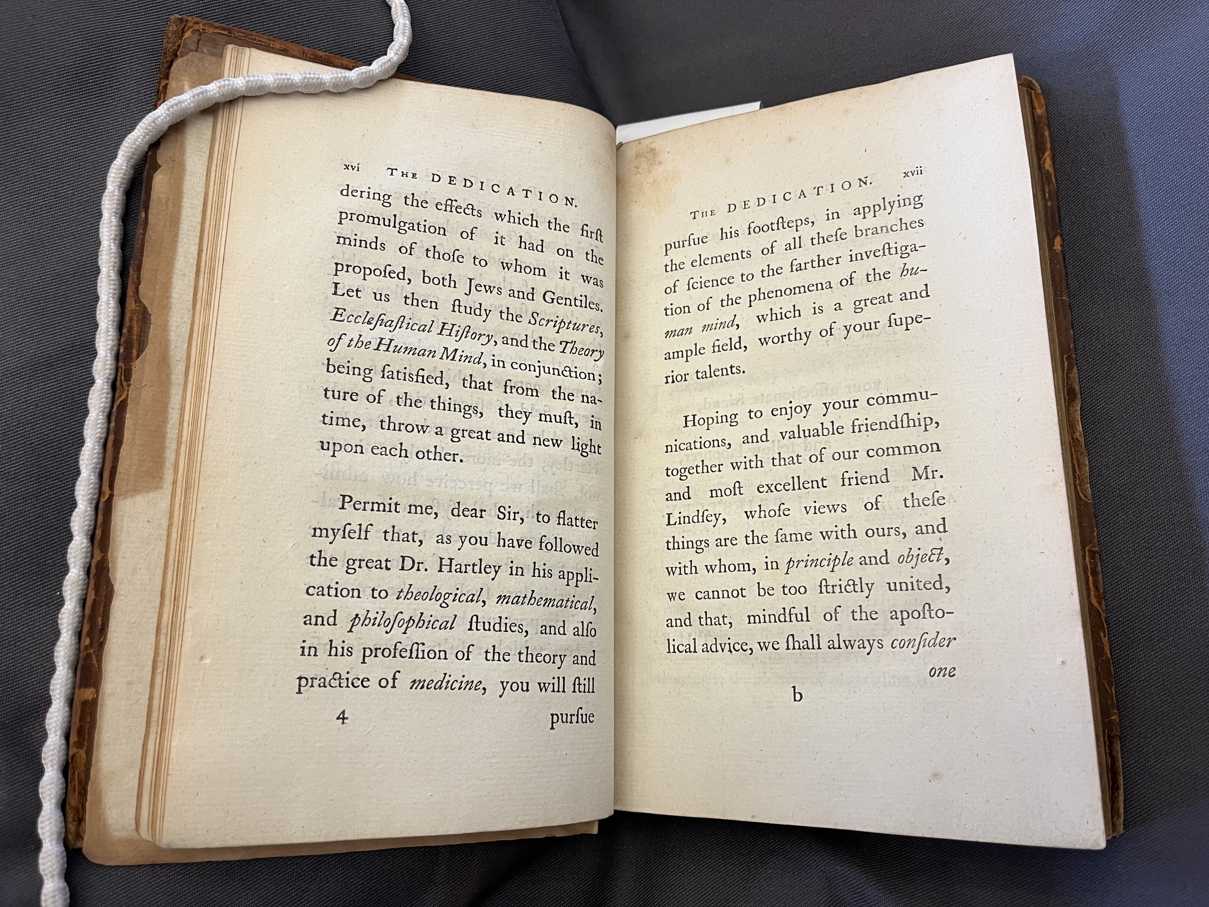 xvi THE DEDICATION.
dering the effects which the firſt
promulgation of it had on the
minds of thoſe to whom it was
propoſed, both Jews and Gentiles.
Let us then ſtudy the Scriptures,
Eccleſiaſtical Hiſtory, and the Theory
of the Human Mind, in conjunction;
being ſatisfied, that from the na-
ture of the things, they muſt, in
time, throw a great and new light
upon each other.
Permit me, dear Sir, to flatter
myſelf that, as you have followed
the great Dr. Hartley in his appli-
cation to theological, mathematical,
and philoſophical ſtudies, and alſo
in his profeſſion of the theory and
practice of medicine, you will ſtill
4 purſue
THE DEDICATION. xvii
purſue his footſteps, in applying
the elements of all theſe branches
of ſcience to the farther inveſtiga-
tion of the phenomena of the hu-
man mind, which is a great and
ample field, worthy of your ſupe-
rior talents.
Hoping to enjoy your commu-
nications, and valuable friendſhip,
together with that of our common
and moſt excellent friend Mr.
Lindſey, whoſe views of theſe
things are the ſame with ours, and
with whom, in principle and object,
we cannot be too ſtrictly united,
and that, mindful of the apoſto-
lical advice, we ſhall always conſider
one
b